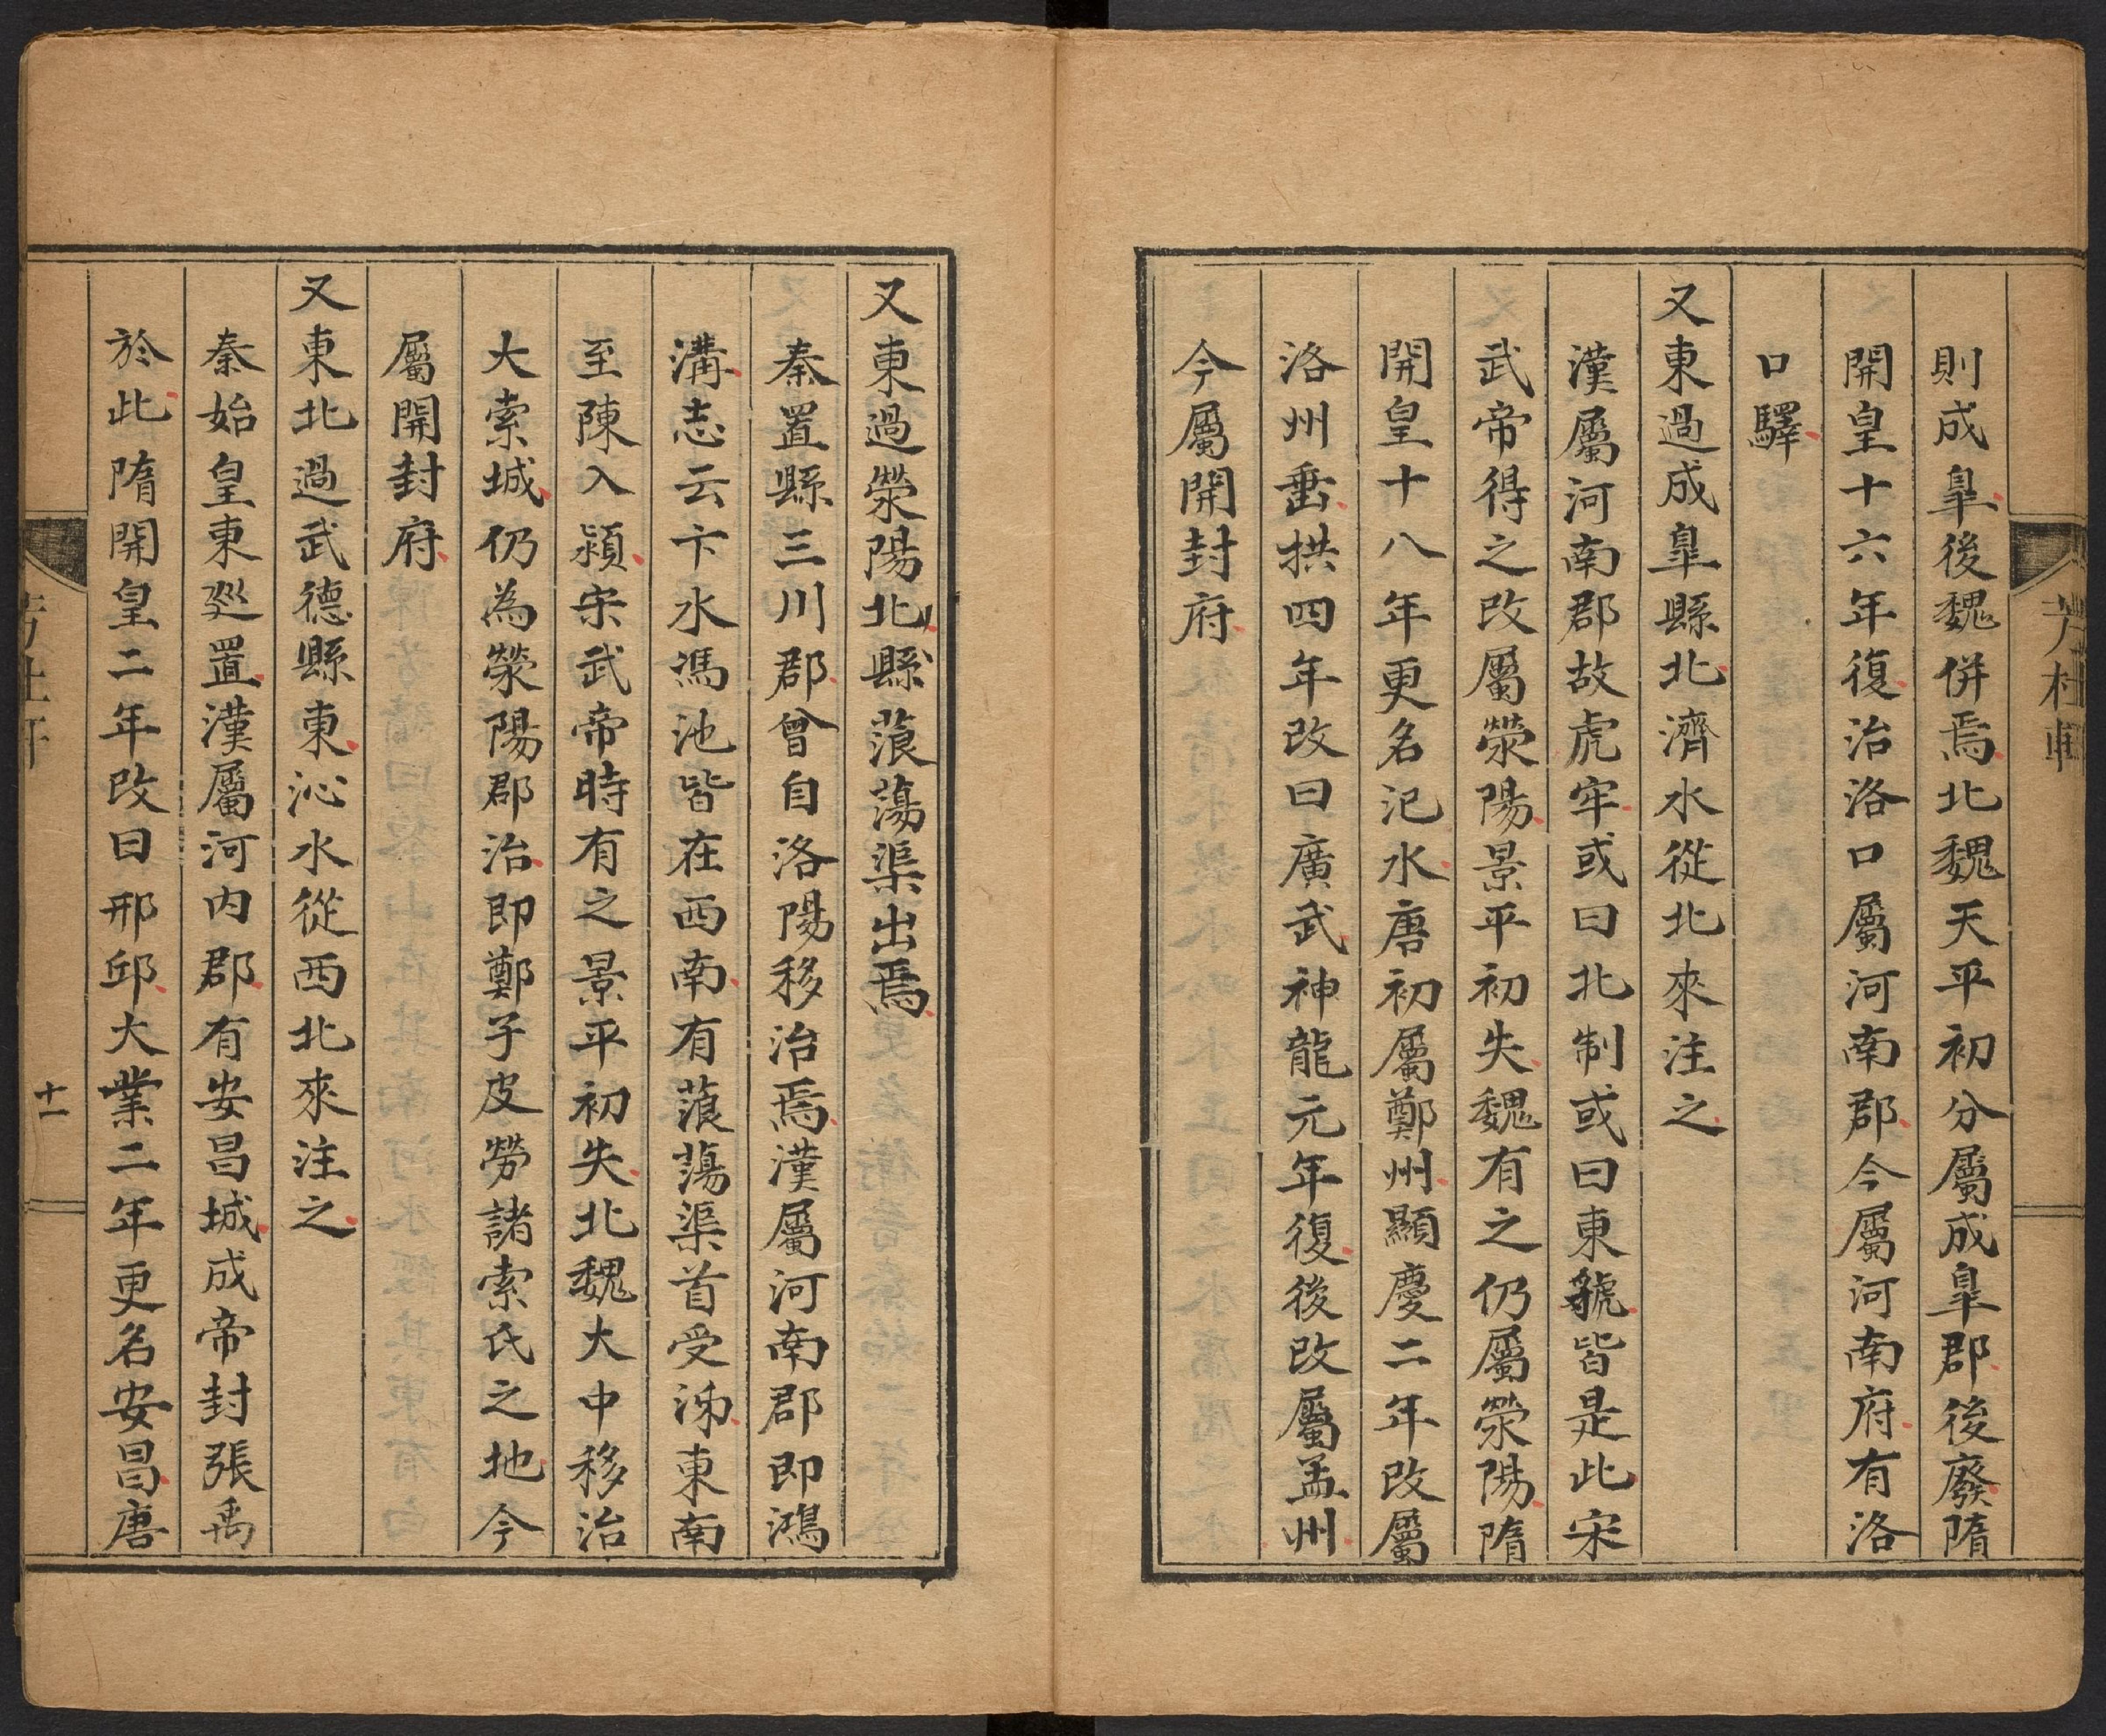 則成臯後魏併焉北魏天平初分屬成臯郡後廢隋
開皇十六年復治洛口屬河南郡今屬河南府有洛
口驛
又東過成臯縣北濟水從北來注之
漢屬河南郡故虎牢或曰北制或曰東虢皆是此宋
武帝得之改屬滎陽景平初失魏有之仍屬滎陽隋
開皇十八年更名汜水唐初屬鄭州顯慶二年改屬
洛州垂拱四年改曰廣武神龍元年復後改屬孟州
今屬開封府
又東過滎陽北縣蒗蕩渠出焉
秦置縣三川郡曾自洛陽移治焉漢屬河南郡即鴻
溝志云卞水馮池皆在西南有蒗蕩渠首受泲東南
至陳入潁宋武帝時有之景平初失北魏大中移治
大索城仍為滎陽郡治即鄭子皮勞諸索氏之地今
屬開封府
又東北過武德縣東沁水從西北來注之
秦始皇東廵置漢屬河內郡有安昌城成帝封張禹
於此隋開皇二年改曰邢邱大業二年更名安昌唐
十一